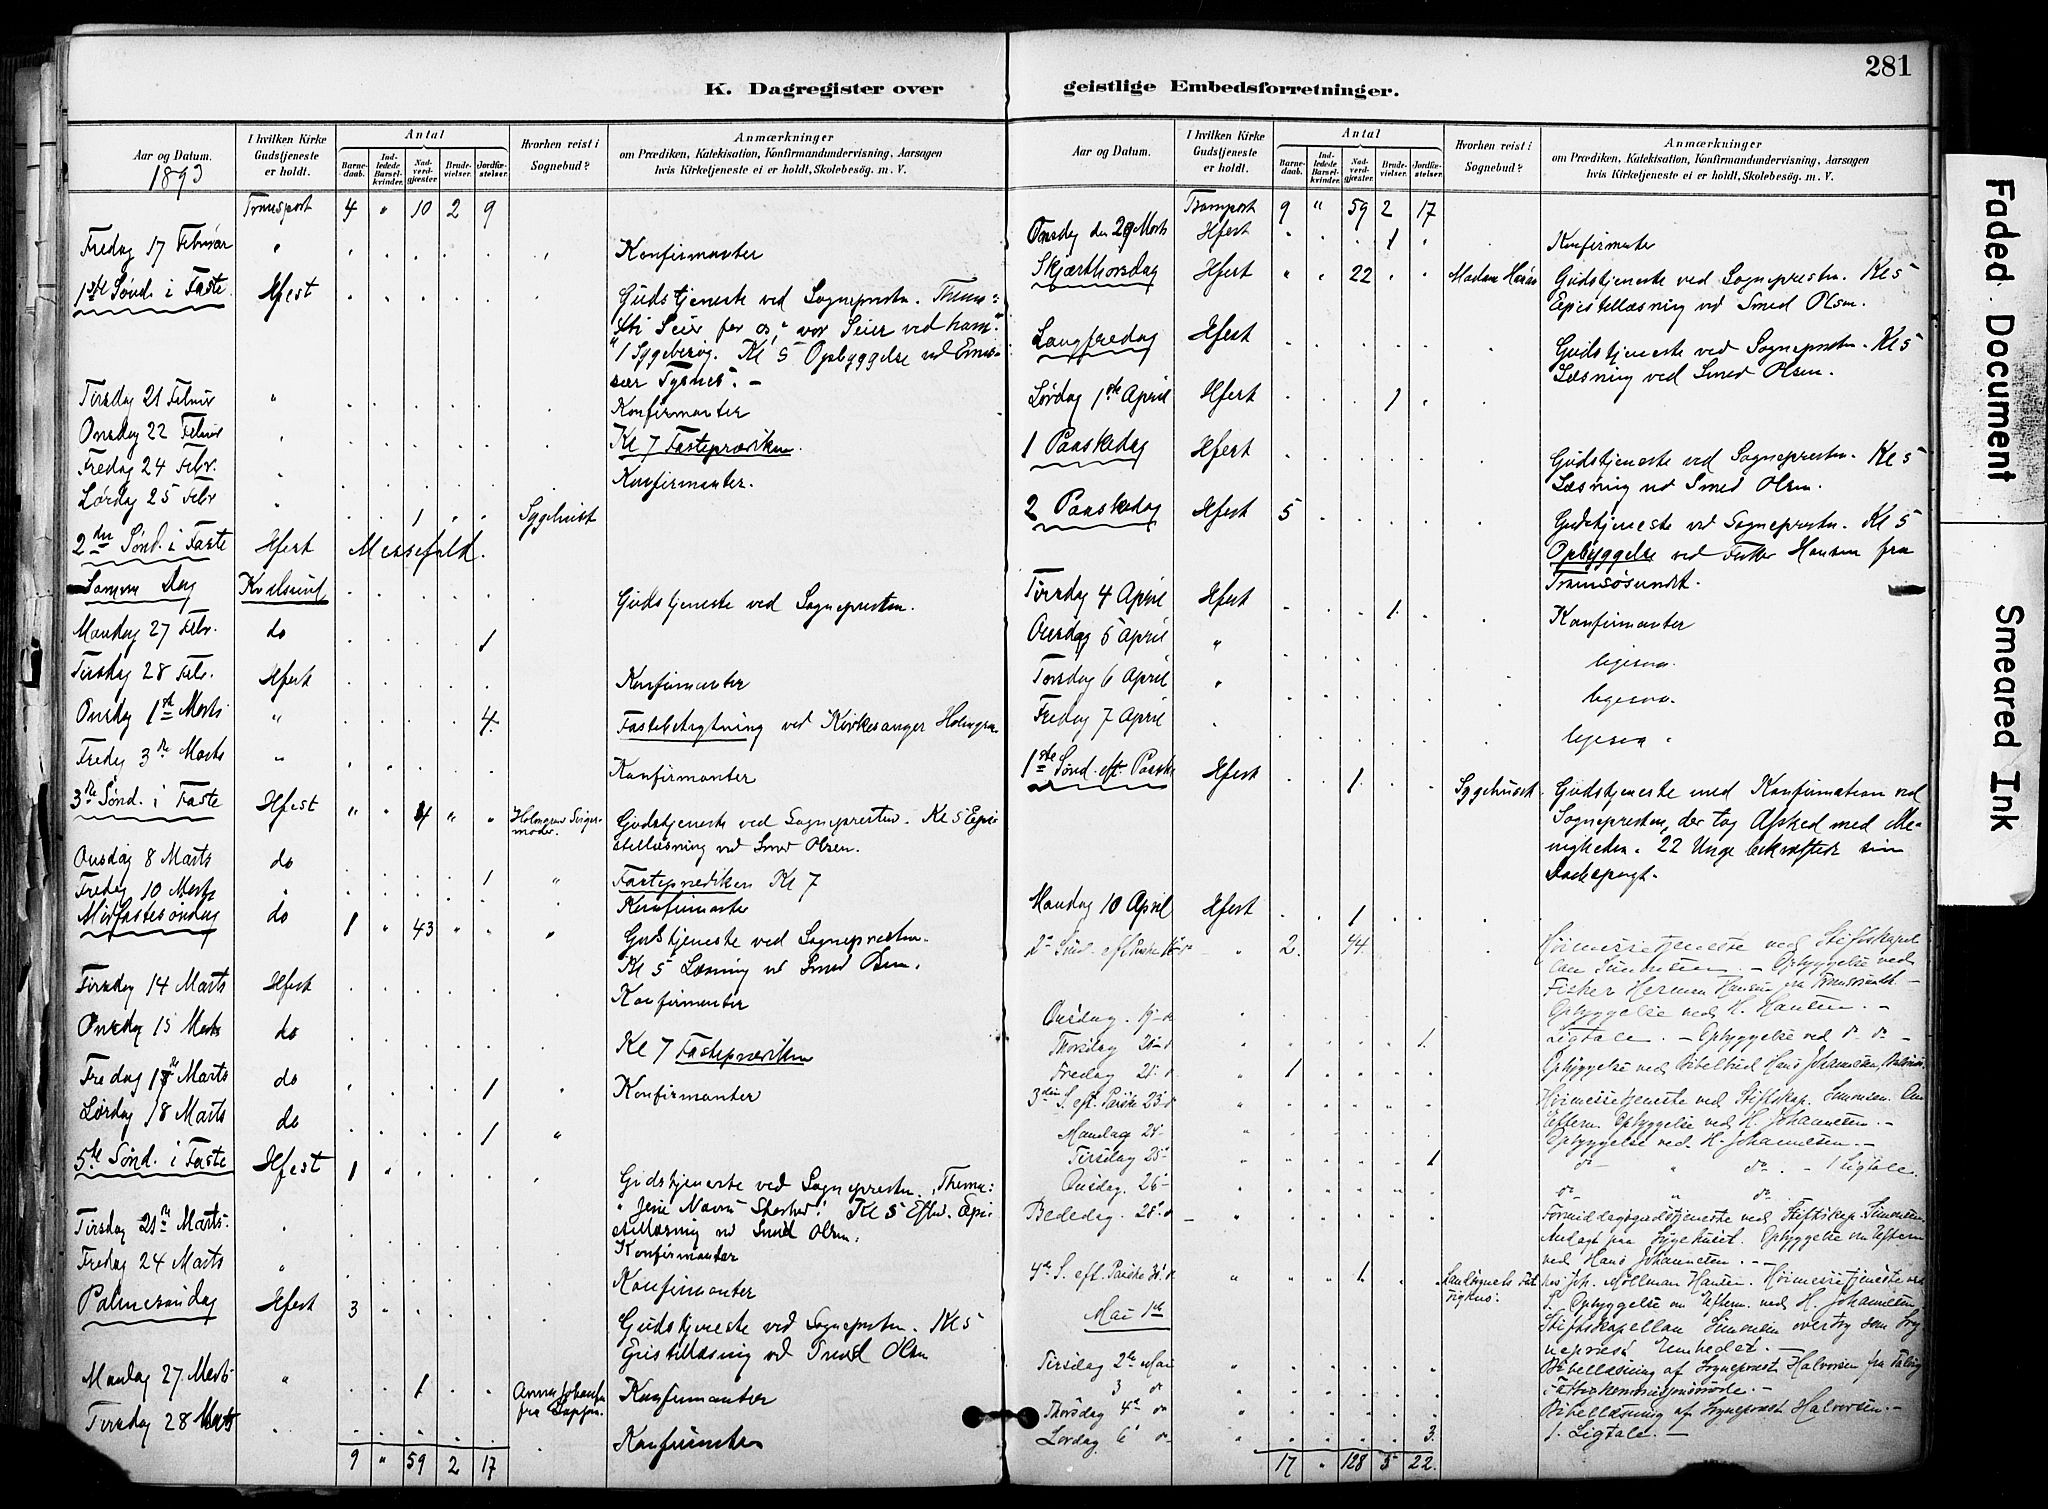 281
K. Dagregister over
geistlige Embedsforretninger.
Aar og Datum.
1893
I hvilken Kirke Gudstjeneste er holdt.
Antal
Barnedaab.
Indledede Barselkvinder.
Nadverdgjæster
Brudevielser.
Jordfæstelser.
Hvorhen reist i Sognebud?
Anmærkninger
om Prædiken, Katekisation, Konfirmandundervisning, Aarsagen
hvis Kirketjeneste ei er holdt, Skolebesøg. m. V.
Transport 4 " 10 2 9
Fredag 17 Februar " Konfirmanter
1ste Sønd. i Faste Hfest Gudstjeneste ved Sognepresten. Thema:
Seier for os" vor Seier ved ham."
1 Sygebesøg. Kl 5 Opbyggelse ved Emis-
sær Tysnes. -
Tirsdag 21 Februar " Konfirmanter
Onsdag 22 Februar Kl 7 Fasteprædiken.
Fredag 24 Febr. Konfirmanter.
Lørdag 25 Febr 1 Sygehuset
2den Sønd. i Faste Hfest Messefald.
Samme Dag Kvalsund Gudstjeneste ved Sognepresten.
Mandag 27 Febr. do 1
Tirsdag 28 Febr. Hfest Konfirmanter
Onsdag 1ste Marts " 4. Fastebetragtning ved Kirkesanger Holmgren
Fredag 3die Marts " Konfirmanter
3die Sønd. i Faste Hfest " " 4 " " Holmgrens Svigermoder Gudstjeneste ved Sognepresten. Kl 5 Epi-
stellæsning ved Smed Olsen.
Onsdag 8 Marts do 1 " Fasteprediken Kl 7
Fredag 10 Marts Konfirmanter
Midfastesøndag do 1 " 43 " " " Gudstjeneste ved Sognepresten.
Kl 5 Læsning ved Smed Olsen.
Tirsdag 14 Marts Hfest Konfirmanter
Onsdag 15 Marts do Kl 7 Fasteprædiken
Fredag 17 Marts do 1 Konfirmanter
Lørdag 18 Marts do 1 "
5te Sønd. i Faste Hfest 1 " Gudstjeneste ved Sognepresten. Thema:
Kl 5 Efterm. Epi-
stellæsning ved Smed Olsen.
Tirsdag 21 Marts. Konfirmanter
Fredag 24 Marts " Konfirmanter
Palmesøndag Hfest 3 " Gudstjeneste ved Sognepresten. Kl 5
Epistellæsning ved Smed Olsen
Mandag 27 Marts " 1 Anna Johansen fra Konfirmanter
Tirsdag 28 Marts Konfirmanter
9 " 59 2 17
Aar og Datum.
I hvilken Kirke Gudstjeneste er holdt.
Antal
Barnedaab.
Indledede Barselkvinder.
Nadverdgjæster
Brudevielser.
Jordfæstelser.
Hvorhen reist i Sognebud?
Anmærkninger
om Prædiken, Katekisation, Konfirmandundervisning, Aarsagen
hvis Kirketjeneste ei er holdt, Skolebesøg. m. V.
Transport 9 " 59 2 17
Onsdag den 29 Marts Hfest 1 Konfirmanter
Skjærthorsdag Hfest " " 22 Madam Gudstjeneste ved Sognepresten. Kl 5
Epistellæsning ved Smed Olsen.
Langfredag Hfest Gudstjeneste ved Sognepresten. Kl 5
Læsning ved Smed Olsen.
Lørdag 1ste April Hfest 1
1 Paaskedag Hfest Gudstjeneste ved Sognepresten. Kl 5
Læsning ved Smed Olsen.
2 Paaskedag Hfest 5 Gudstjeneste ved Sognepresten. Kl 5
Opbyggelse ved Fisker Hansen fra
Tromsøsundet.
Tirsdag 4 April Hfest 1 Konfirmanter
Onsdag 5 April " ligesaa.
Torsdag 6 April " ligesaa.
Fredag 7 April ligesaa.
1ste Sønd. eft. Paaske Hfest 1 Sygehuset Gudstjeneste med Konfirmation ved
Sognepresten, der tog Afsked med Me-
nigheden. 22 Unge bekræftede sin
Daabspagt.
Mandag 10 April Hfest 1
2den Sønd. eft. Paaske 16 do " 2. 44. Høimessetjeneste ved Stiftskapel-
lan Simonsen. - Opbyggelse ved
Fisker Herman Hansen fra Tromsøsundet -
Onsdag 19 do Opbyggelse ved H. Hansen. -
Thorsdag 20 do " 1. Ligtale. - Opbyggelse ved do do -
Fredag 21 do " 1 Opbyggelse ved Bibelbud Hans Johannesen,
3die S. eft. Paaske 23 do " Høimessetjeneste ved Stiftskap. Simonsen. Om
Efterm. Opbyggelse ved H. Johannesen. -
Mandag 24 " Opbyggelse ved H. Johannesen. -
Tirsdag 25 " 1 do " do - 1 Ligtale.
Onsdag. 26 " do " do
Bededag. 28 do " Formiddagsgudstjeneste ved Stiftskap. Simonsen.
Andagt paa Sygehuset. Opbyggelse om Efterm.
ved Hans Johannesen. -
4de S. eft. Paaske 30 do " 1 Joh. Møllman Hansen. Høimessetjeneste ved
S. Opbyggelse om Efterm. ved H. Johannesen.
Mai 1ste Stiftskapellan Simonsen overtog som Sog-
neprest Embedet. -
Tirsdag 2den Mai " Bibellæsning af Sogneprest Halvorsen fra Talvig
3 do "
Thorsdag 4de do " Bibellæsning af Sogneprest Halvorsen. -
Lørdag 6 do " 3. 1. Ligtale. -
17 " 128 5 22.
Faded Document
Smeared Ink